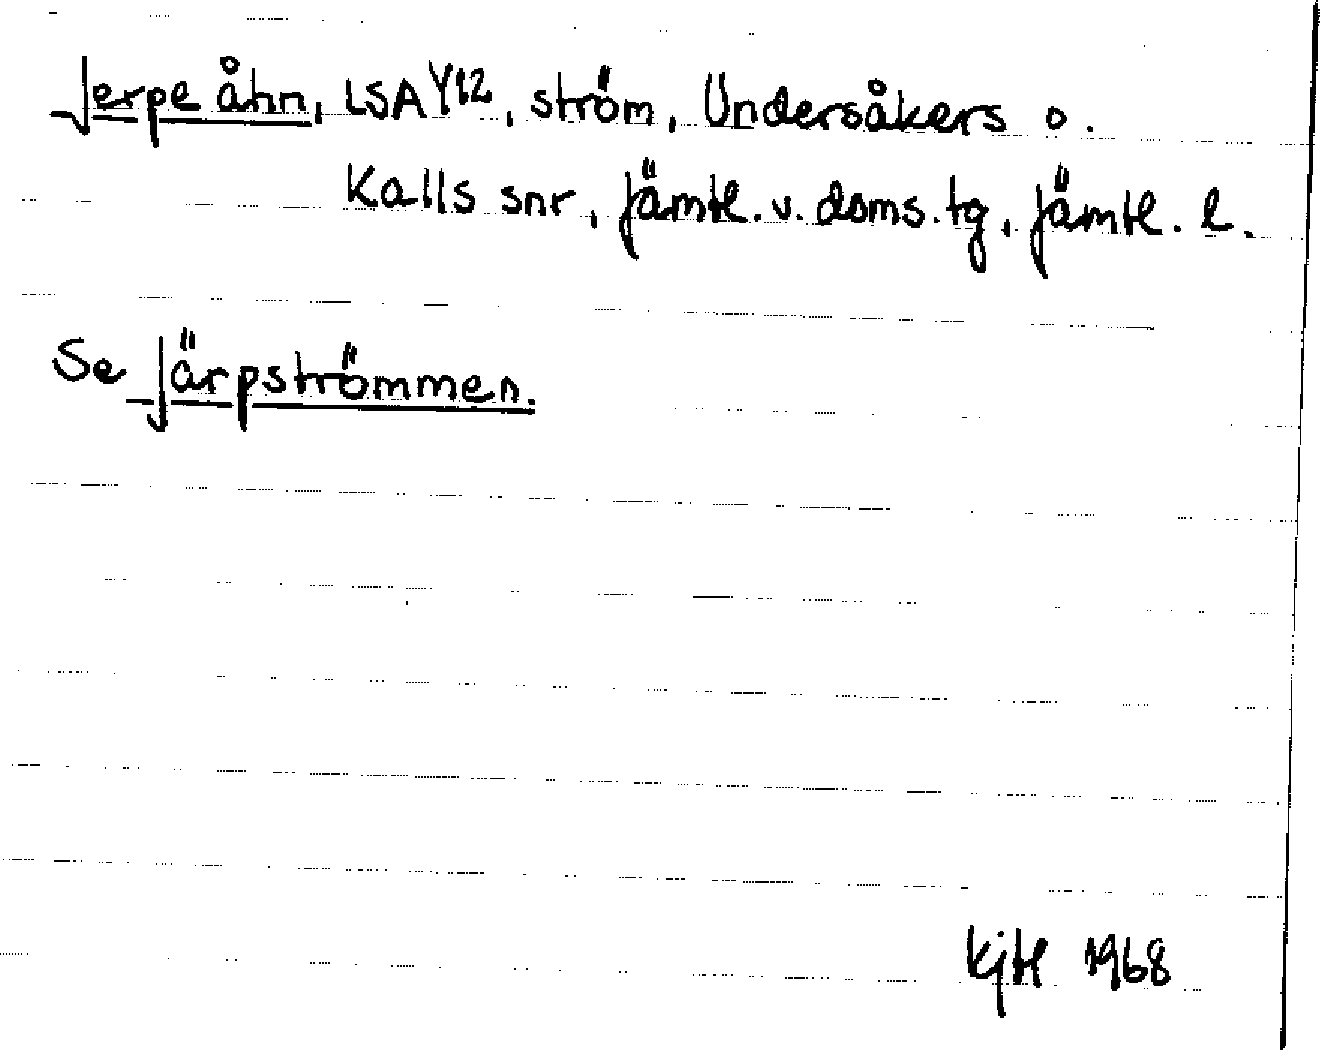 Jerpe åhn, LSA Y12, ström, Undersåkers o.
Kalls snr, Jämtl. v. doms. tg, Jämtl. l.
Se Järpströmmen.
1968